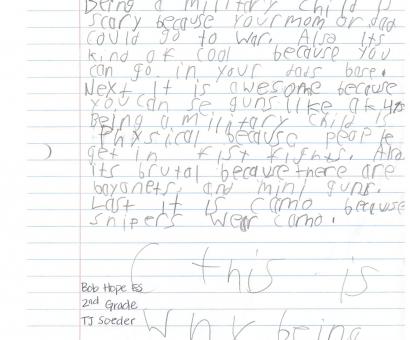 Being a military child is
scary because your mom or dad
could go to war. Also its
kind of cool because you
can go in your dads base.
Next it is awesome because
you can se guns like a
Being a military child is
Physical because people
get in fist fights. Also
its brutal because there are
bayonets, and mini guns.
Last it is camo because
snipers wear camo.
( this is
Bob Hope ES
2nd Grade
TJ Soeder
Why being